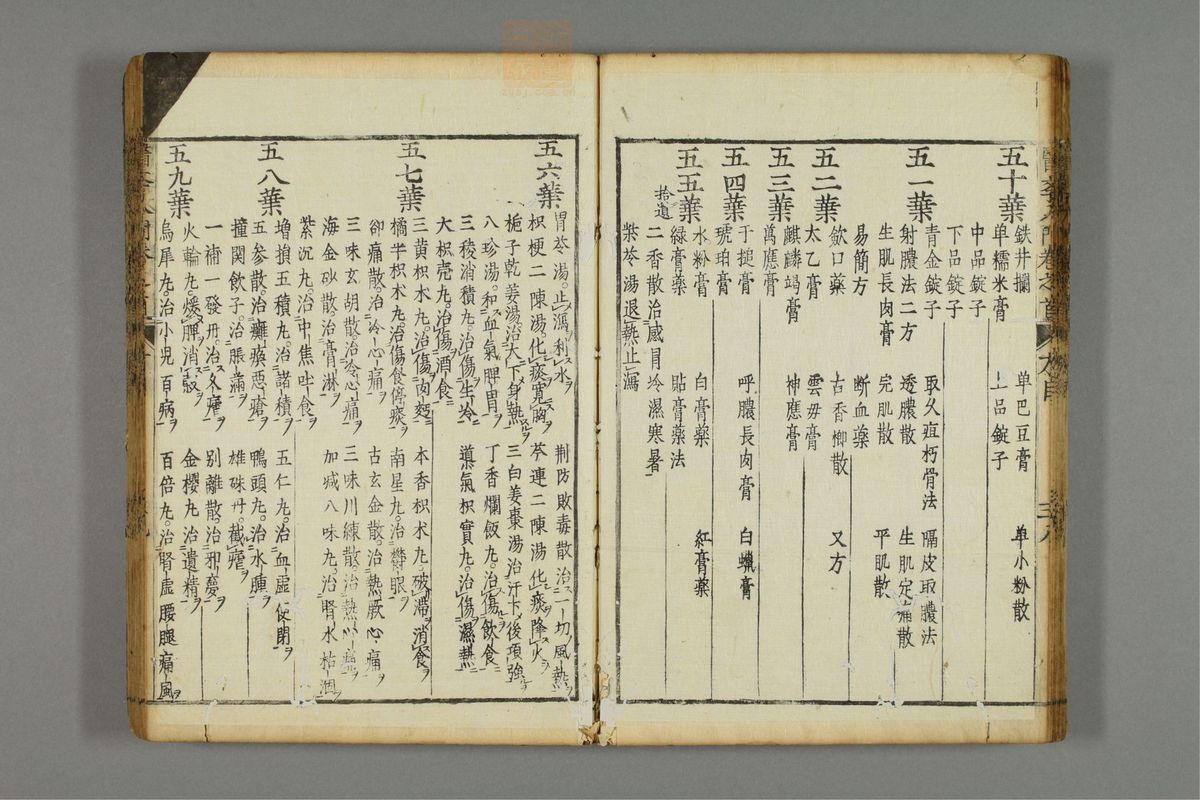 五十葉
鉄井攔　单巴豆膏　单小粉散
单糯米膏　上品錠子
中品錠子
下品錠子
青金錠子　取久疽朽骨法　膈皮取膿法
五一葉
射膿法二方　透膿散　生肌定痛散
生肌長肉膏　完肌散　平肌散
易簡方　断血藥
歛口藥　古香柳散　又方
五二葉
太乙膏　雲母膏
麒麟竭膏　神應膏
五三葉
萬應膏
五四葉
于搥膏　呼膿長肉膏　白蠟膏
琥珀膏
水粉膏　白膏藥　紅膏藥
五五葉
緑膏藥　貼膏藥法
拾遺
二香散治感冒冷濕寒暑
柴苓湯退熱止瀉
五六葉
胃苓湯止瀉利水　荆防敗毒散治一切風熱
枳梗二陳湯化痰寛胸　芩連二陳湯化痰降火
梔子乾姜湯治大下身熱　三白姜棗湯治汗下後項強
八珍湯和血氣脾胃　丁香爛飯丸治傷飲食
三稜消積丸治傷生冷　導氣枳實丸治傷濕熱
大枳壳丸治傷酒食
五七葉
三黄枳术丸治傷肉麪　木香枳术丸破滯消食
橘半枳术丸治傷食停痰　南星丸治欝眠
却痛散治冷心痛　古玄金散治熱厥心痛
三味玄胡散治冷心痛　三味川練散治熱心痛
海金砂散治膏淋　加減八味丸治腎水枯涸
紫沉丸治中焦吐食
五八葉
増損五積丸治諸積　五仁丸治血虛便閉
五参散治癱瘓惡瘡　鴨頭丸治水腫
撞関飲子治脹滿　雄硃丹截瘧
一補一發丹治久瘧　别離散治邪夢
五九葉
火輪丸煖脾消穀　金櫻丸治遺精
烏犀丸治小児百病　百倍丸治腎虚腰腿痛風